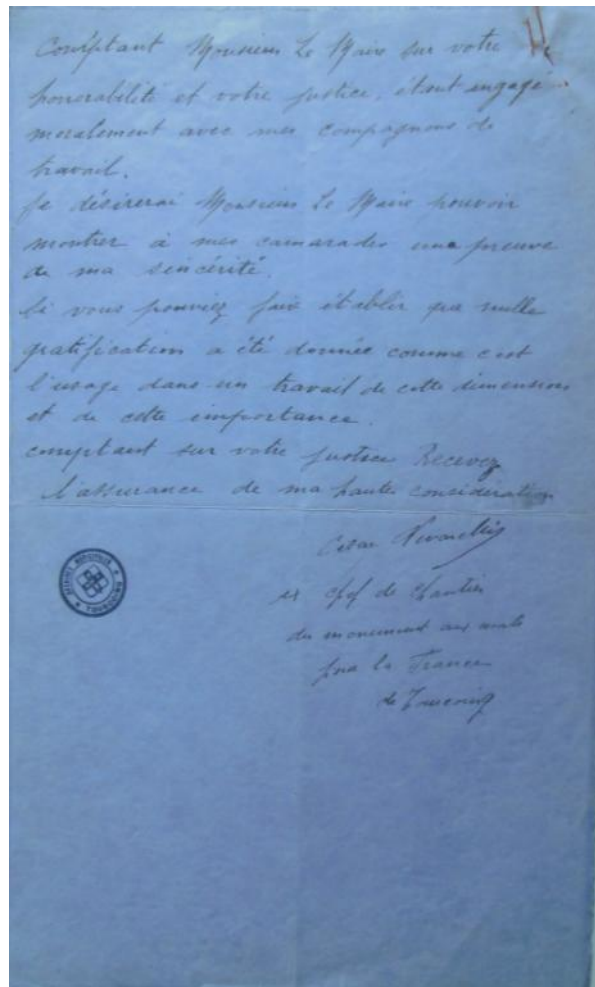 Comptant Monsieur Le Maire sur votre
honorabilité et votre justice, étant engagé
moralement avec mes compagnons de
travail.
Je désirerai Monsieur Le Maire pouvoir
montrer à mes camarades une preuve
de ma sincérité.
Si vous pouviez faire établir que nulle
gratification a été donnée comme c'est
l'usage dans un travail de cette dimensions
et de cette importance.
comptant sur votre justice Recevez
l'assurance de ma haute considération
ex chef de chantier
du monument aux morts
pour la France
de Tourcoing
TOURCOING